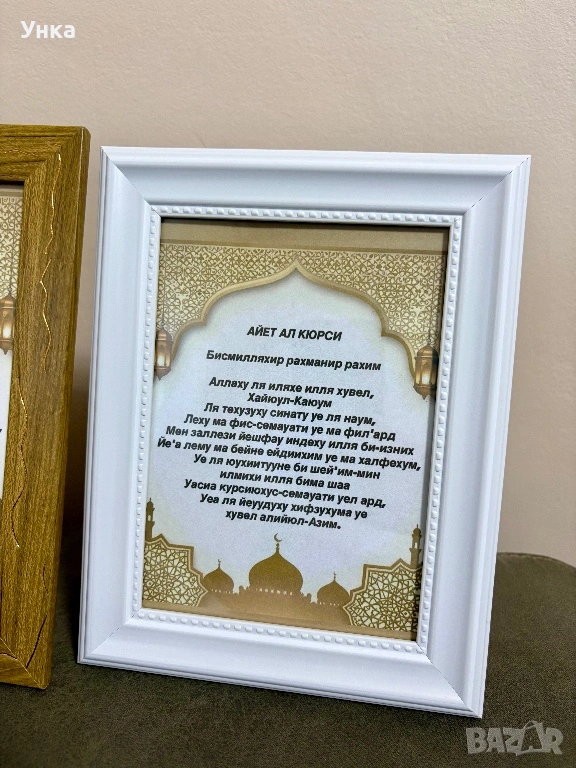 Унка
АЙЕТ АЛ КЮРСИ
Бисмилляхир рахманир рахим
Аллаху ля иляхе илля хувел,
Хайюул-Каюум
Ля техузуху синату уе ля наум,
Леху ма фис-семауати уе ма фил'ард
Мен заллези йешфау индеху илля би-изних
Йе'а лему ма бейне ейдиихим уе ма халфехум,
Уе ля юухиитууне би шей'им-мин
илмихи илля бима шаа
Уасиа курсиюхус-семауати уел ард,
Уеа ля йеуудуху хифзухума уе
хувел алийюл-Азим.
BAZAR